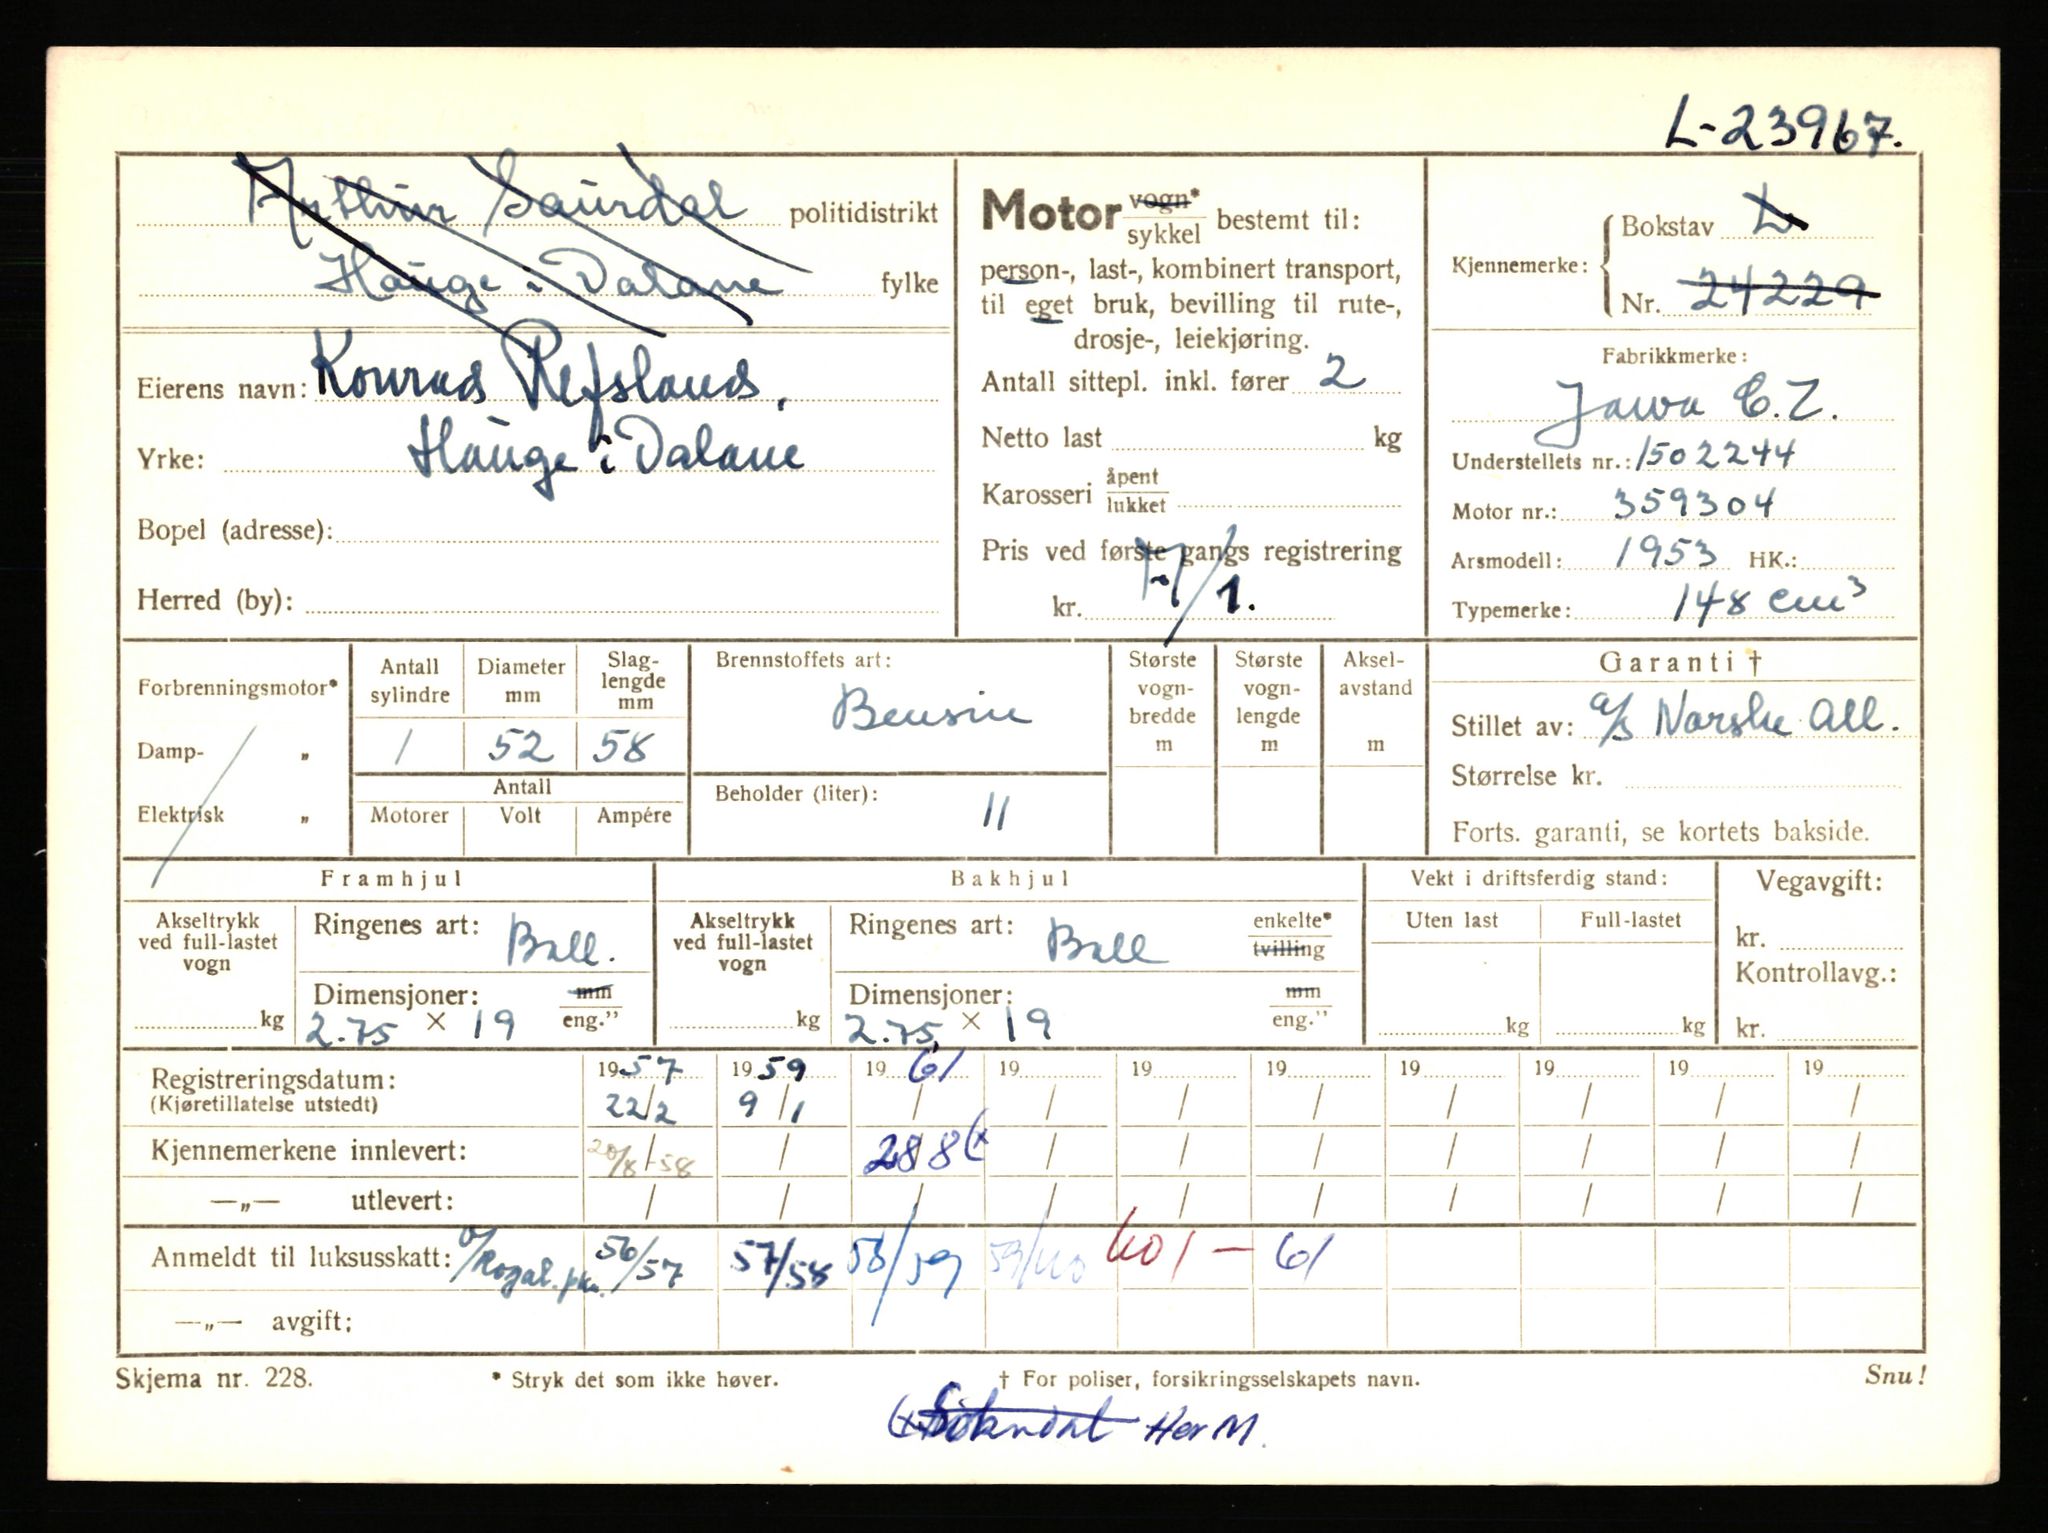 L-23967.
Arthur Saurdal politidistrikt
Hauge i Dalane fylke
Eierens navn: Konrad Refsland,
Yrke: Hauge i Dalane
Bopel (adresse):
Herred (by):
Motor vogn* / sykkel bestemt til:
person-, last-, kombinert transport,
til eget bruk, bevilling til rute-,
drosje-, leiekjøring.
Antall sittepl. inkl. fører 2
Netto last kg
Karosseri åpent / lukket
Pris ved første gangs registrering
kr.
Kjennemerke: Bokstav L
Nr. 24229
Fabrikkmerke:
Jawa C.Z.
Understellets nr.: 1502244
Motor nr.: 359304
Arsmodell: 1953 HK.:
Typemerke: 148 cm³
Forbrenningsmotor*
Damp- „
Elektrisk „
Antall sylindre Diameter mm Slag-lengde mm
1 52 58
Antall
Motorer Volt Ampére
Brennstoffets art:
Bensin
Beholder (liter): 11
Største vogn-bredde m
Største vogn-lengde m
Aksel-avstand m
Garanti †
Stillet av: a/s Norske All.
Størrelse kr.
Forts. garanti, se kortets bakside.
Framhjul
Akseltrykk ved full-lastet vogn
kg
Ringenes art: Ball.
Dimensjoner: mm / eng."
2.75 × 19
Bakhjul
Akseltrykk ved full-lastet vogn
kg
Ringenes art: Ball enkelte* / tvilling
Dimensjoner: mm / eng."
2.75 × 19
Vekt i driftsferdig stand:
Uten last Full-lastet
kg kg
Vegavgift:
kr.
Kontrollavg.:
kr.
Registreringsdatum: 1957 1959 1961 19 19 19 19 19 19 19
(Kjøretillatelse utstedt) 22/2 9/1 / / / / / / / /
Kjennemerkene innlevert: 20/8-58 / 28/8 (x / / / / / / /
—„— utlevert: / / / / / / / / / /
Anmeldt til luksusskatt: 56/57 57/58 58/59 59/60 601 — 61
—„— avgift:
Skjema nr. 228. * Stryk det som ikke høver. † For poliser, forsikringsselskapets navn. Snu!
(x Sokndal Her M.